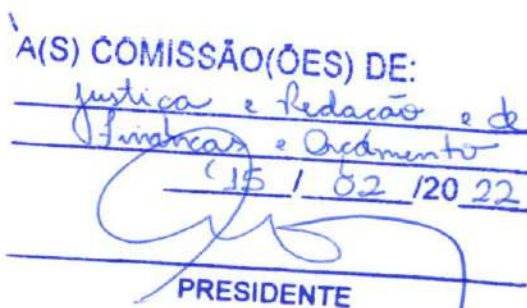 À(S) COMISSÃO(ÕES) DE:
Justiça e Redação e de
Finanças e Orçamento
15 / 02 /20 22
PRESIDENTE